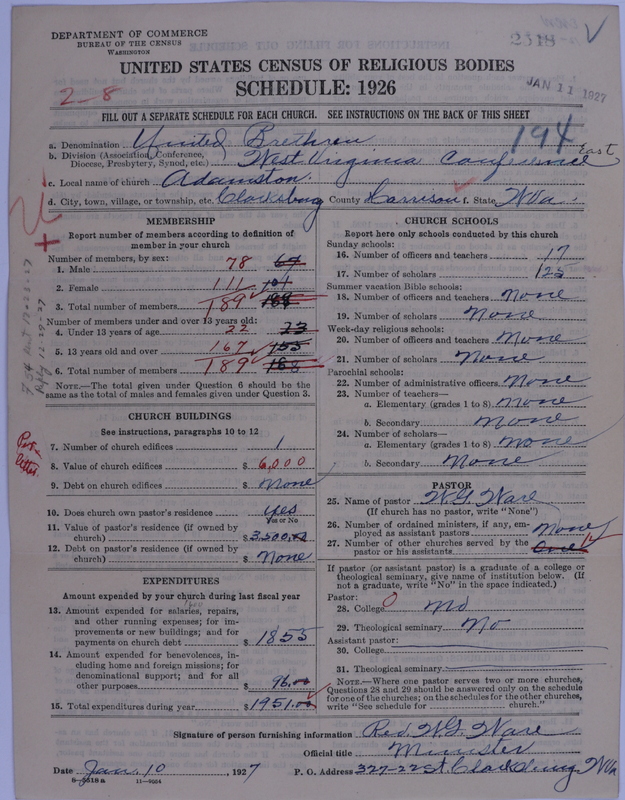 DEPARTMENT OF COMMERCE
BUREAU OF THE CENSUS
WASHINGTON
2318
JAN 11 1927
UNITED STATES CENSUS OF RELIGIOUS BODIES
SCHEDULE: 1926
2-8
FILL OUT A SEPARATE SCHEDULE FOR EACH CHURCH. SEE INSTRUCTIONS ON THE BACK OF THIS SHEET
194
a. Denomination United Brethren
b. Division (Association, Conference, Diocese, Presbytery, Synod, etc.) West Virginia Conference East
c. Local name of church Adamston.
d. City, town, village, or township, etc. Clarksburg County Harrison f. State W Va.
MEMBERSHIP
Report number of members according to definition of
member in your church
Number of members, by sex:
1. Male 78 67
2. Female 111 101
3. Total number of members 189 188
Number of members under and over 13 years old:
4. Under 13 years of age 22 33
5. 13 years old and over 167 155
6. Total number of members 189 188
NOTE.—The total given under Question 6 should be
same as the total of males and females given under Question 3.
CHURCH BUILDINGS
See instructions, paragraphs 10 to 12
7. Number of church edifices 1
8. Value of church edifices $ 6,000
9. Debt on church edifices $ None
10. Does church own pastor's residence? yes
Yes or No
11. Value of pastor's residence (if owned by
church) $ 3,500.00
12. Debt on pastor's residence (if owned by
church) $ None
EXPENDITURES
Amount expended by your church during last fiscal year
13. Amount expended for salaries, repairs,
and other running expenses; for im-
provements or new buildings; and for
payments on church debt $ 1855
14. Amount expended for benevolences, in-
cluding home and foreign missions; for
denominational support; and for all
other purposes $ 96.00
15. Total expenditures during year $ 1951.00
CHURCH SCHOOLS
Report here only schools conducted by this church
Sunday schools:
16. Number of officers and teachers 17
17. Number of scholars 123
Summer vacation Bible schools:
18. Number of officers and teachers None
19. Number of scholars None
Week-day religious schools:
20. Number of officers and teachers None
21. Number of scholars None
Parochial schools:
22. Number of administrative officers None
23. Number of teachers—
a. Elementary (grades 1 to 8) None
b. Secondary None
24. Number of scholars—
a. Elementary (grades 1 to 8) None
b. Secondary None
PASTOR
25. Name of pastor W G Ware
(If church has no pastor, write "None")
26. Number of ordained ministers, if any, em-
ployed as assistant pastors None
27. Number of other churches served by the
pastor or his assistants One
If pastor (or assistant pastor) is a graduate of a college or
theological seminary, give name of institution below. (If
not a graduate, write "No" in the space indicated.)
Pastor:
28. College No
29. Theological seminary No
Assistant pastor:
30. College
31. Theological seminary
NOTE.—Where one pastor serves two or more churches,
Questions 28 and 29 should be answered only on the schedule
for one of the churches; on the schedules for the other churches,
write "See schedule for church."
Signature of person furnishing information Rev. W. G. Ware
Official title Minister
Date Jan. 10, 1927
P. O. Address 327-22 St. Clarksburg W Va
8—5318a 11—9004